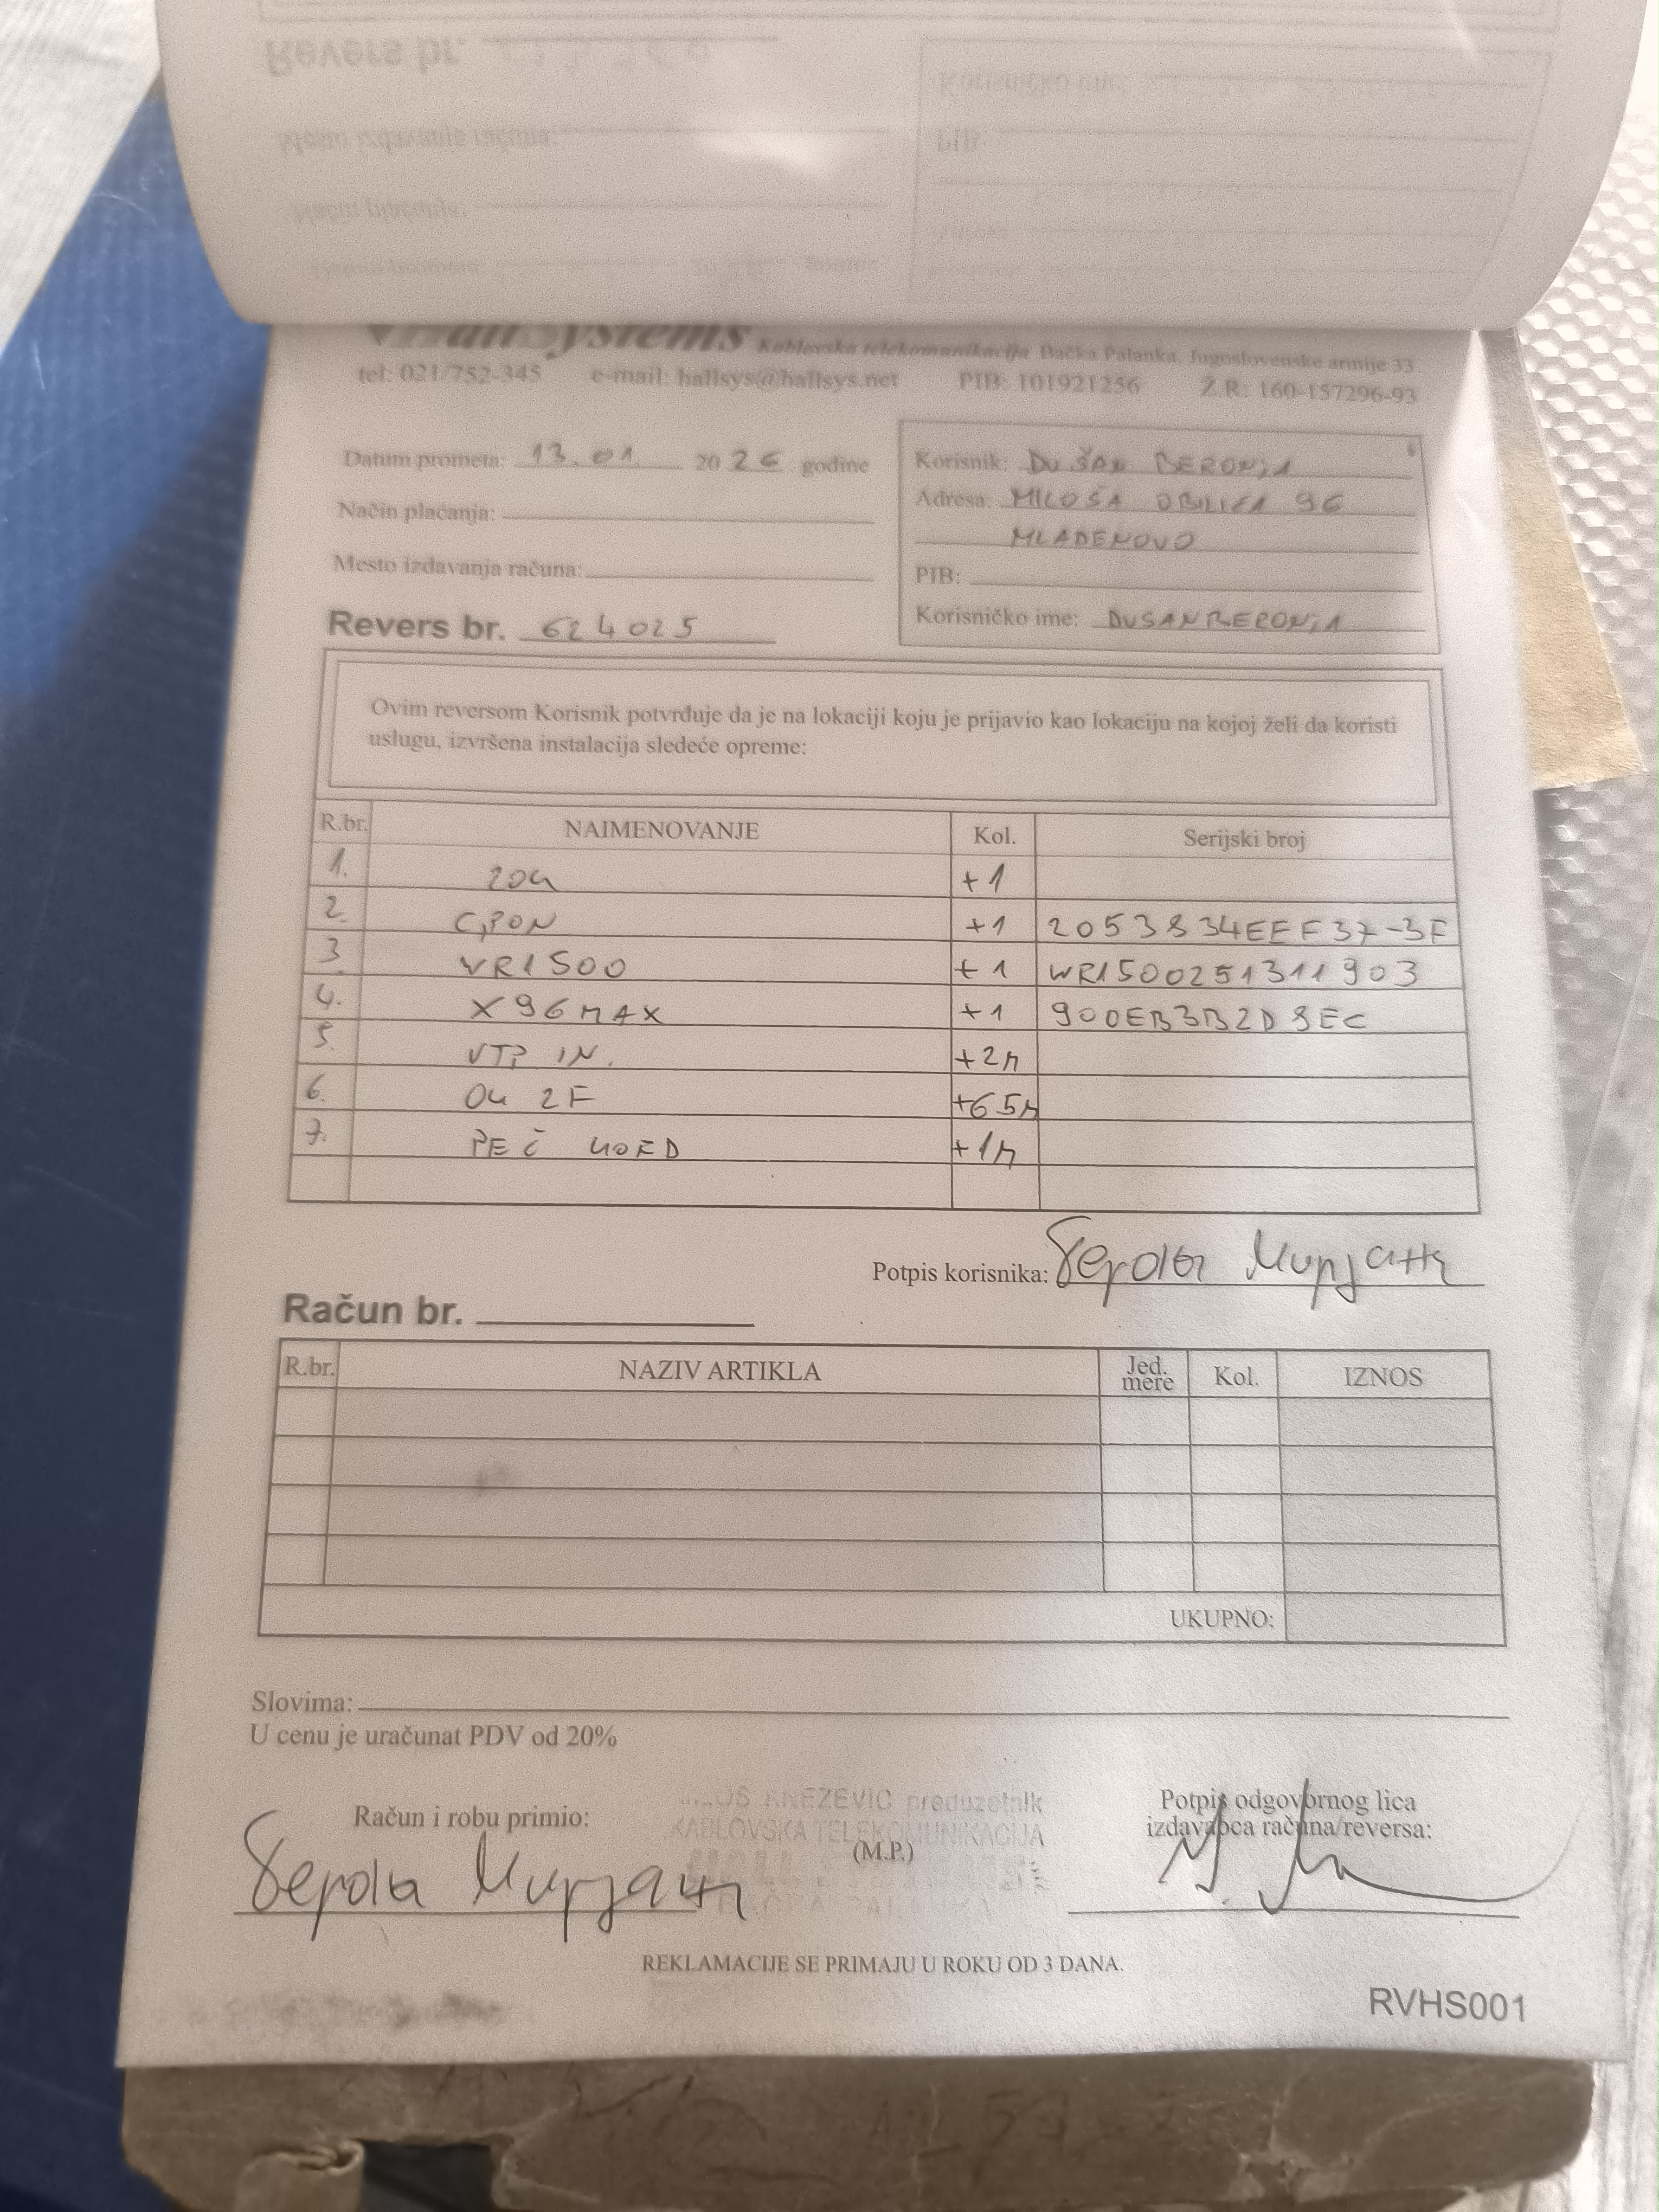 HallSystems Kablovska telekomunikacija Bačka Palanka, Jugoslovenske armije 33
tel: 021/752-345 e-mail: hallsys@hallsys.net PIB: 101921256 Ž.R: 160-157296-93
Datum prometa: 13.01. 2026 godine
Način plaćanja:
Mesto izdavanja računa:
Revers br. 624025
Korisnik: DUŠAN BERONJA
Adresa: MILOŠA OBILIĆA 96
MLADENOVO
PIB:
Korisničko ime: DUSANBERONJA
Ovim reversom Korisnik potvrđuje da je na lokaciji koju je prijavio kao lokaciju na kojoj želi da koristi
uslugu, izvršena instalacija sledeće opreme:
R.br. NAIMENOVANJE Kol. Serijski broj
1. ZOK +1
2. GPON +1 2053834EEF37-3F
3. WR1500 +1 WR1500251311903
4. X96MAX +1 900EB3B2D8EC
5. UTP IN. +2M
6. OK 2F +65M
7. PEČ KOED +1M
Potpis korisnika: Мирјана
Račun br.
R.br. NAZIV ARTIKLA Jed. mere Kol. IZNOS
UKUPNO:
Slovima:
U cenu je uračunat PDV od 20%
Račun i robu primio:
Мирјана
MILOŠ KNEŽEVIĆ preduzetnik
KABLOVSKA TELEKOMUNIKACIJA
(M.P.)
Potpis odgovornog lica
izdavaoca računa/reversa:
REKLAMACIJE SE PRIMAJU U ROKU OD 3 DANA.
RVHS001